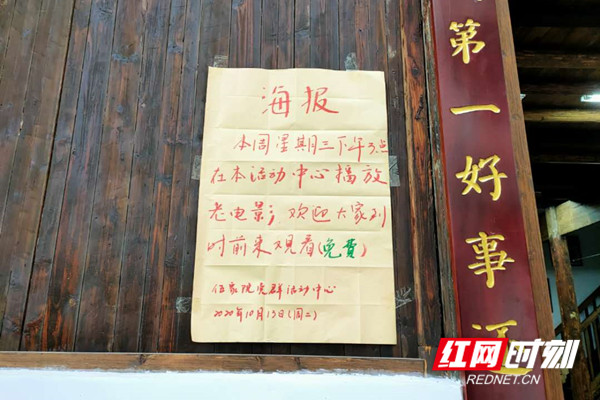 海报
本周星期三下午3点
在本活动中心播放
老电影；欢迎大家到
时前来观看(免費)
伍家院党群活动中心
2020年10月13日(周二)
第一好事
红网时刻
REDNET.CN